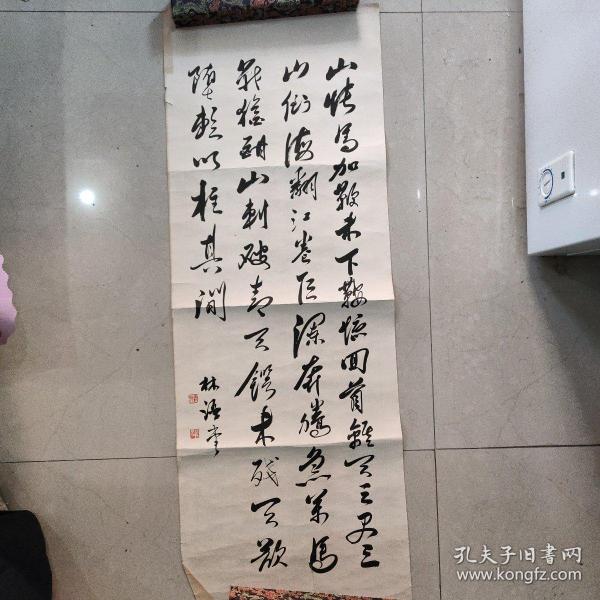 山快马加鞭未下鞍惊回首离天三尺三
山倒海翻江卷巨澜奔腾急万马
战犹酣山刺破青天锷未残天欲
堕赖以柱其间
林语堂
孔夫子旧书网
www.kongfz.com